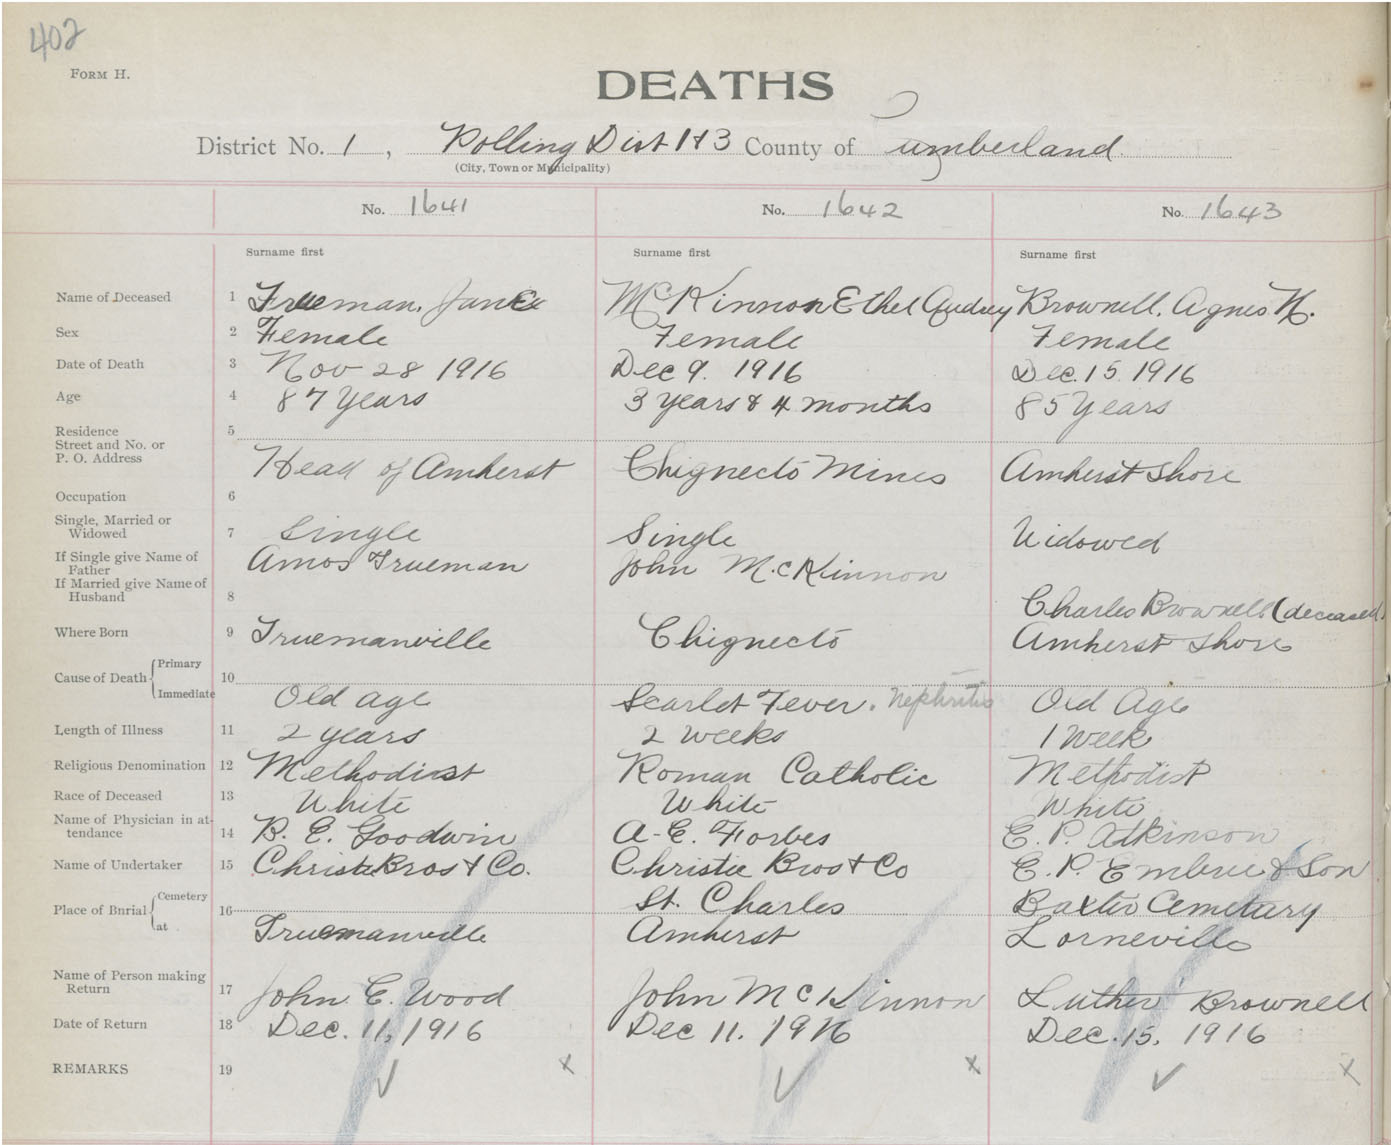 402
FORM H.
DEATHS
District No. 1, Polling Dist 1 & 3 County of Cumberland
(City, Town or Municipality)
No. 1641 No. 1642 No. 1643
Surname first Surname first Surname first
Name of Deceased 1 Trueman, Jane McKinnon Ethel Audrey Brownell, Agnes N.
Sex 2 Female Female Female
Date of Death 3 Nov 28 1916 Dec 9. 1916 Dec. 15 1916
Age 4 87 Years 3 years & 4 months 85 Years
Residence 5
Street and No. or
P. O. Address Head of Amherst Chignecto Mines Amherst Shore
Occupation 6
Single, Married or
Widowed 7 Single Single Widowed
If Single give Name of
Father Amos Trueman John McKinnon
If Married give Name of
Husband 8 Charles Brownell (deceased)
Where Born 9 Truemanville Chignecto Amherst Shore
Cause of Death { Primary 10
Immediate Old age Scarlet Fever. Nephritis Old Age
Length of Illness 11 2 years 2 weeks 1 Week
Religious Denomination 12 Methodist Roman Catholic Methodist
Race of Deceased 13 White White White
Name of Physician in at-
tendance 14 B. E. Goodwin A. E. Forbes E. P. Atkinson
Name of Undertaker 15 Christie Bros & Co. Christie Bros & Co E. P. Embree & Son
Place of Burial { Cemetery 16 St. Charles Baxter Cemetary
at Truemanville Amherst Lorneville
Name of Person making
Return 17 John E. Wood John McKinnon Luther Brownell
Date of Return 18 Dec. 11, 1916 Dec 11. 1916 Dec. 15, 1916
REMARKS 19 ✓ x ✓ x ✓ x